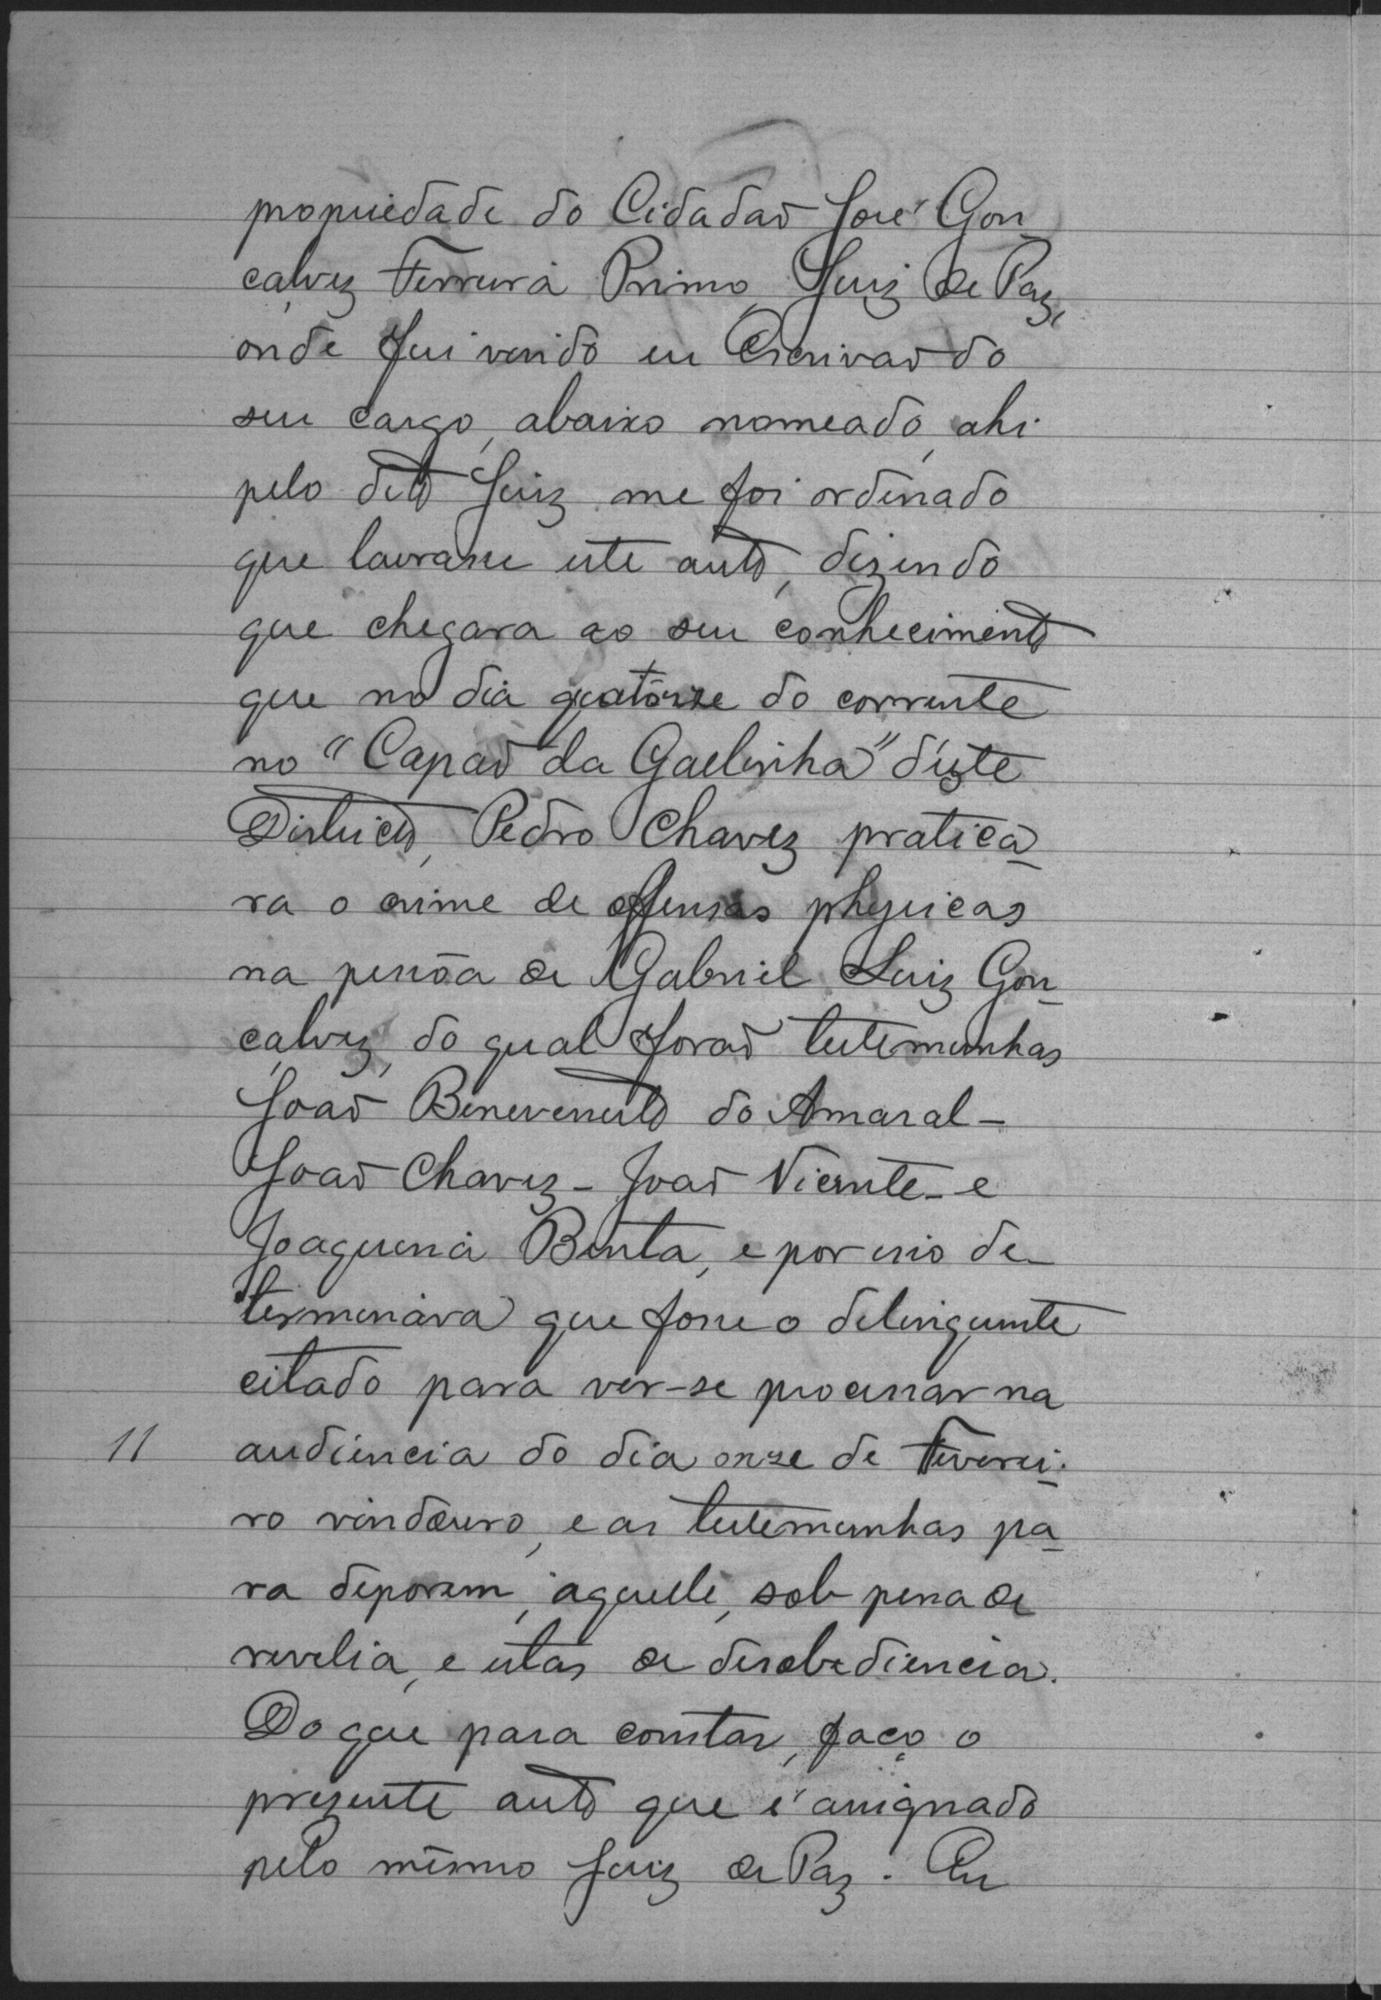 propriedade do Cidadaõ José Gon_
çalvez Ferreira Primo, Juiz de Paz,
onde fui vindo eu Escrivaõ do
seu cargo, abaixo nomeado, ahi
pelo dito Juiz me foi ordenado
que lavrasse este auto, dizendo
que chegara ao seu conhecimento
que no dia quatorze do corrente
no "Capaõ da Gaelinha" d'este
Districto, Pedro Chavez pratica_
ra o crime de offensas physicas
na pessôa de Gabriel Luiz Gon_
çalvez, do qual foraõ testemunhas
Joaõ Benevenuto do Amaral -
Joaõ Chavez - Joaõ Vicente - e
Joaquina Benta, e por isso de_
terminava que fosse o delinquente
citado para ver-se processar na
11 audiencia do dia onze de Feverei_
ro vindouro, e as testemunhas pa_
ra deporem, aquelle, sob pena de
revelia, e estas de desobediencia.
Do que para constar, faço o
prezente auto que é assignado
pelo mesmo Juiz de Paz. Eu